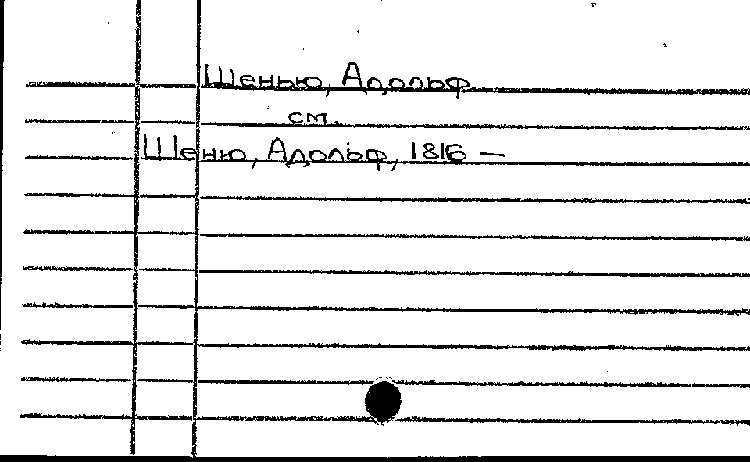 Шенью, Адольф
см.
Шеню, Адольф, 1816 —